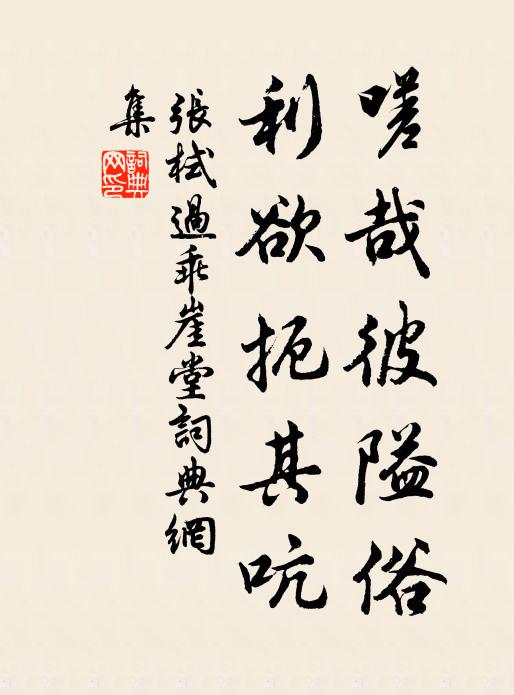 嗟哉彼隘俗
利欲扼其吭
張栻過乖崖堂詞典網
集
詞典
网印